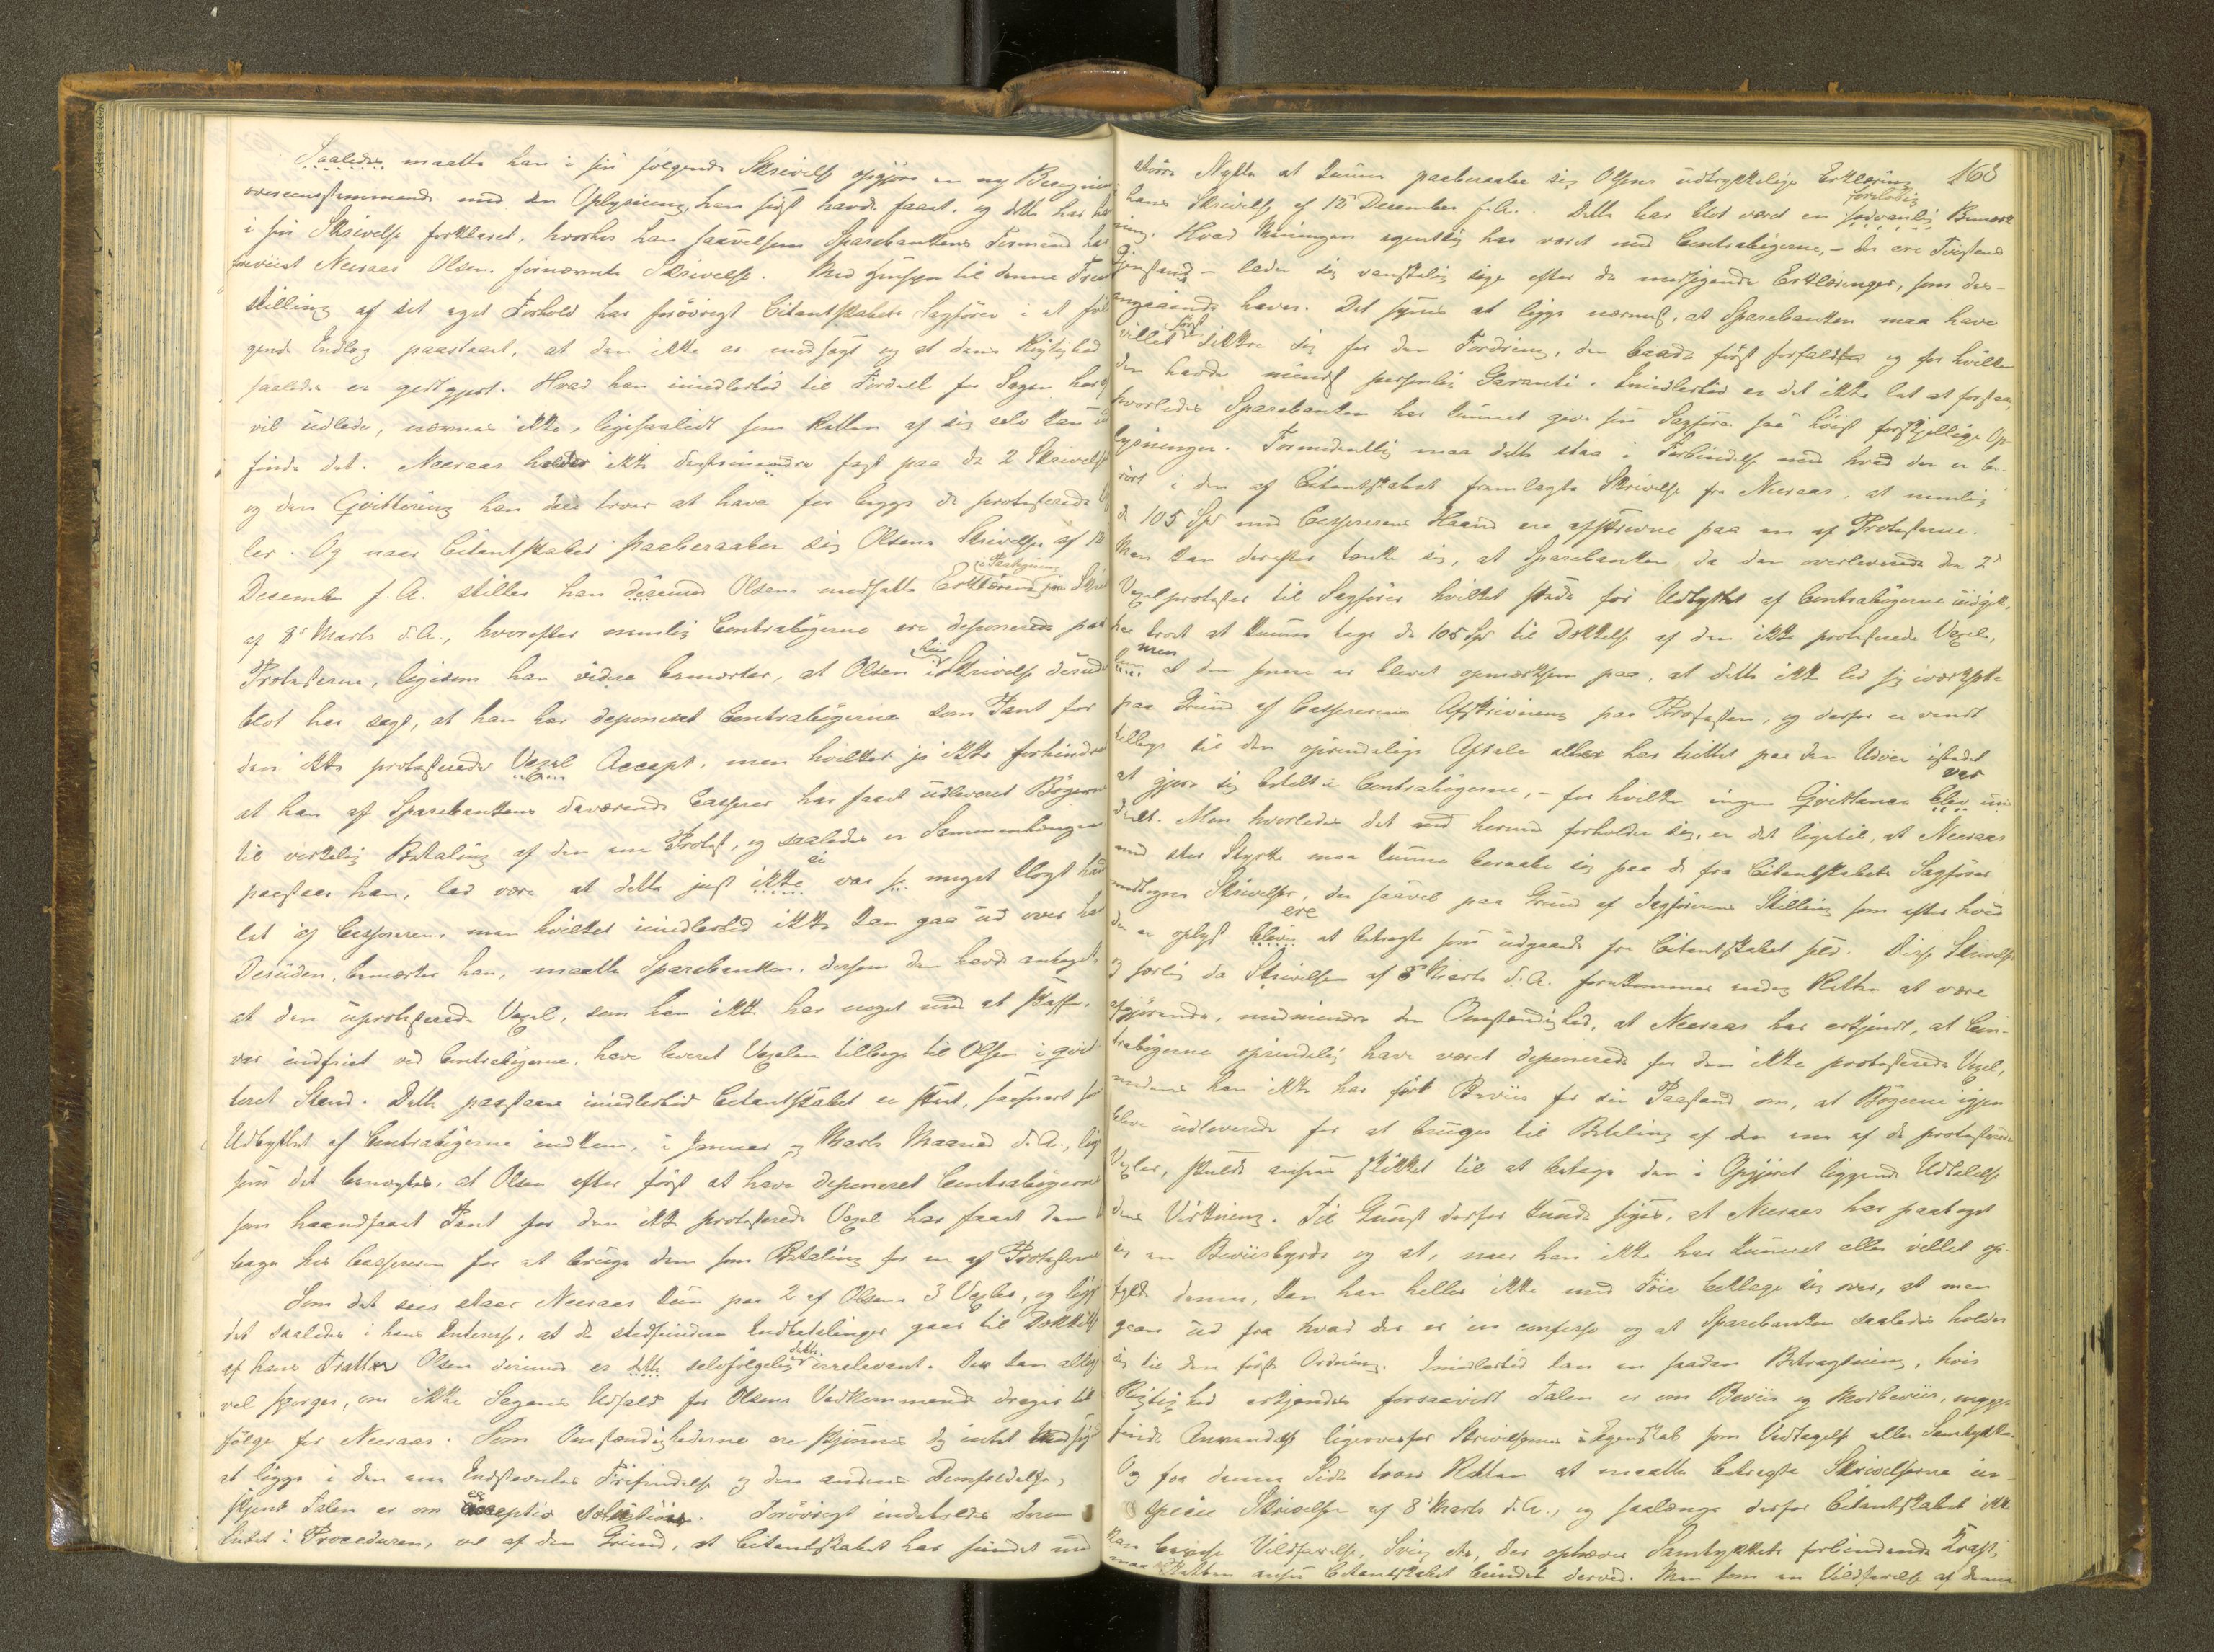 Saaledes maatte han i sin følgende Skrivelse opgjøre en ny Beregning
overeensstemmende med den Oplysning, han sidst havde faaet, og dette har han
i sin Skrivelse forklaret, hvorhos han saavelsom Sparebankens Formand har
foreviist Neeraas Olsens førnævnte Skrivelse. Med Hensyn til denne Frem
stilling af det eget Forhold har forøvrigt Citantskabets Sagfører i et føl
gende Indlæg paastaaet, at den ikke er modsagt og at dens Rigtighed
saaledes er godtgjort. Hvad han imidlertid til Fordeel for Sagen heraf
vil udlede, nævnes ikke, ligesaalidt som Retten af sig selv kan ud
finde det. Neeraas holder ikke destomindre fast paa de 2 Skrivelser
og den Qvittering han deri troer at have for begge de protesterede Vex
ler. Og naar Citantskabet paaberaaber sig Olsens Skrivelse af 12
Desember f. A. stiller han derimod Olsens modsatte Erklæring i Skrivelse
af 8de Marts d. A., hvorefter nemlig Contrabøgerne ere deponerede paa
Protesterne, ligesom han videre bemærker, at Olsen i hiin Skrivelse desuden
blot har sagt, at han har deponeret Contrabøgerne som Pant for
den ikke protesterede Vexel Accept, men hvilket jo ikke forhindrer
at han af Sparebankens daværende Casserer har faaet udleveret Bøgerne
til virkelig Betaling af den ene Protest, og saaledes er Sammenhængen
paastaaer han, lad være at dette just ei var saa meget klogt hand
let af Cassereren, men hvilket imidlertid ikke kan gaa ud over ham
Desuden, bemærker han, maatte Sparebanken, dersom den havde antaget
at den uprotesterede Vexel, som han ikke har noget med at skaffe,
var indfriet ved Contrabøgerne, have leveret Vexelen tilbage til Olsen i qvit
teret Stand. Dette paastaaer imidlertid Citantskabet er skeet, saasnart som
Udbyttet af Contrabøgerne indkom, i Januar og Marts Maaned d. A., lige
som det benægtes, at Olsen efter først at have deponeret Contrabøgerne
som haandfaaet Pant for den ikke protesterede Vexel har faaet dem til
bage hos Cassereren for at bruge dem som Betaling for en af Protesterne
Som det sees staaer Neeraas kun paa 2 af Olsens 3 Vexler, og ligger
det saaledes i hans Interesse, at de stedfundne Indbetalinger gaar til Dækkelse
af hans Tratter Olsen derimod er dette selvfølgelig irrelevant. Der kan allige
vel spørges, om ikke Sagens Udfald for Olsens Vedkommende drager til
følge for Neeraas. Som Omstændighederne ere skjønnes dog intet
at ligge i den ene Indstævntes Frifindelse og den andens Domfældelse,
skjønt Talen er om exceptio solutionis. Forøvrigt indeholdes derom
Intet i Proceduren, vel af den Grund, at Citantskabet har fundet med
168
større Nytte at kunne paaberaabe sig Olsens udtrykkelige Erklæring
i hans Skrivelse af 12te December f. A. Dette har blot været en foreløbig Bemærk
ning. Hvad Meningen egentlig har været med Contrabøgerne, – der ere Tvistens
Gjenstand – lader sig vanskelig sige efter de modsigende Erklæringer, som des-
angaaende haves. Det synes at ligge nærmest, at Sparebanken maa have
villet først sikkre sig for den Fordring, den havde først forfalden og for hvilken
den havde mindst personlig Garanti. Imidlertid er det ikke let at forstaa,
hvorledes Sparebanken har kunnet give sin Sagfører saa høist forskjellige Op
lysninger. Formodentlig maa dette staa i Forbindelse med hvad der er be-
rørt i den af Citantskabet fremlagte Skrivelse fra Neeraas, at nemlig
de 105 Spd med Cassererens Haand ere afskrevne paa en af Protesterne.
Man kan derefter tænke sig, at Sparebanken da den overleverede de 2de
Vexelprotester til Sagfører hvilket skede før Udbyttet af Contrabøgerne indgik,
har troet at kunne tage de 105 Spd til Dækkelse af den ikke protesterede Vexel,
men at den senere er blevet opmærksom paa, at dette ikke lod sig iværksætte
paa Grund af Cassererens Afskrivning paa Protesten, og derfor er vendt
tilbage til den oprindelige Aftale eller har hittet paa den Udvei istedet
at gjøre sig betalt i Contrabøgerne, – for hvilke ingen Qvittance var med
deelt. Men hvorledes det end hermed forholder sig, er det ligetil, at Neeraas
med stor Styrke maa kunne beraabe sig paa de fra Citantskabets Sagfører
modtagne Skrivelser, der saavel paa Grund af Sagførerens Stilling som efter hvad
der er oplyst ere at betragte som udgaaede fra Citantskabet selv. Disse Skrivelser
og særlig da Skrivelsen af 8de Marts d. A. forekommer endog Retten at være
afgjørende, medmindre den Omstændighed, at Neeraas har erkjendt, at Con-
trabøgerne oprindelig have været deponerede for den ikke protesterede Vexel,
medens han ikke har ført Beviis for sin Paastand om, at Bøgerne igjen
bleve udleverede for at bruges til Betaling af den ene af de protesterede
Vexler, skulde ansees skikket til at betage den i Opgjøret liggende Udtalelse
dens Virkning. Til Gunst derfor kunde siges, at Neeraas har paataget
sig en Beviisbyrde og at, naar han ikke har kunnet eller villet op-
fylde denne, kan han heller ikke med Føie beklage sig over, at man
gaaer ud fra hvad der er in confesso og at Sparebanken saaledes holder
sig til den første Ordning. Imidlertid kan en saadan Betragtning, hvis
Rigtighed erkjendes forsaavidt Talen er om Beviis og Modbeviis, neppe
finde Anvendelse ligeoverfor Skrivelserne i Egenskab som Vedtagelse eller Samtykke.
Og fra denne Side troer Retten at maatte betragte Skrivelserne in
specie Skrivelsen af 8de Marts d. A., og saalænge derfor Citantskabet ikke
kan bevise Vildfarelse, Svig etc, der ophæver Samtykkets forbindende Kraft,
maa Retten ansee Citantskabet bundet derved. Men som en Vildfarelse af denne